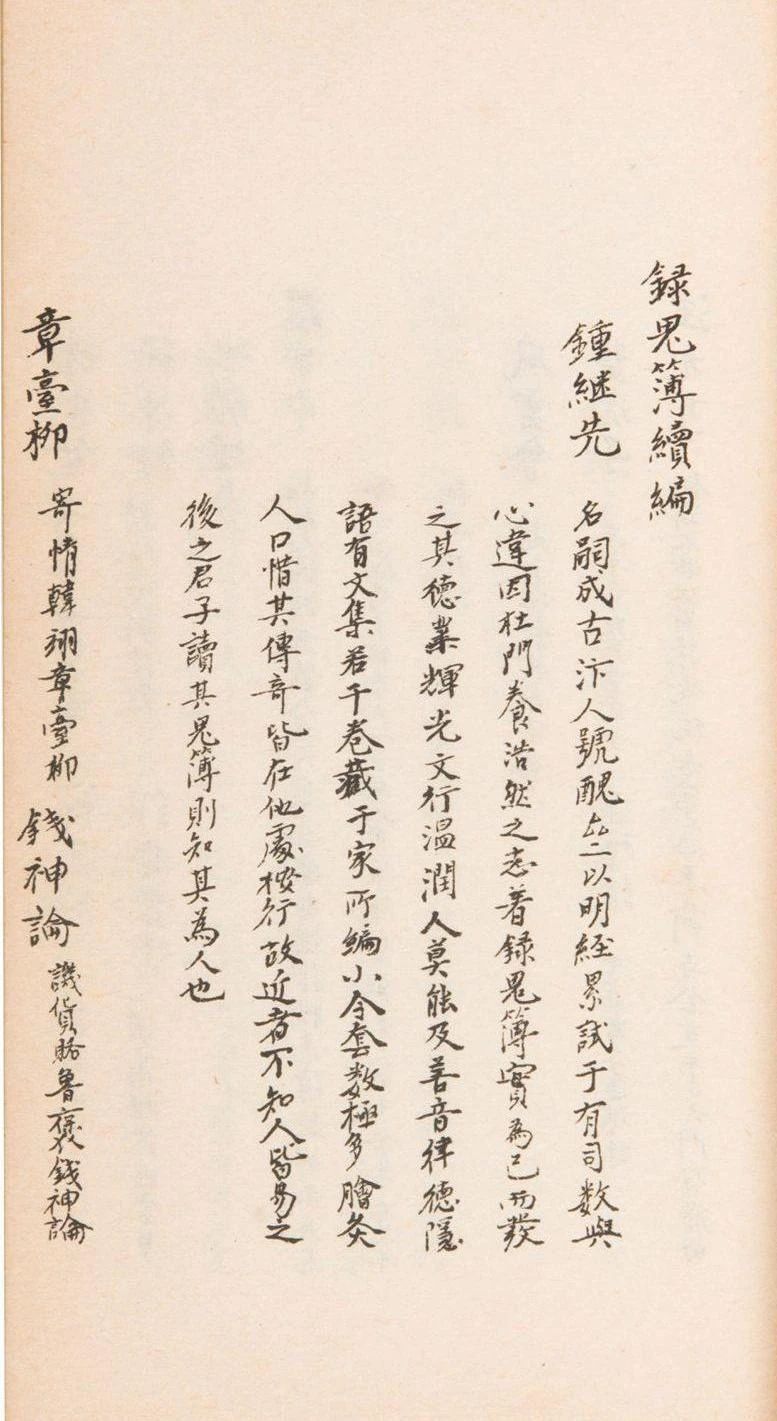 録鬼簿續編
鍾継先
名嗣成古汴人號醜斎以明経累試于有司数與
心違因杜門養浩然之志著録鬼簿實為己而發
之其德業輝光文行温潤人莫能及善音律德隱
語有文集若干卷藏于家所編小令套数極多膾炙
人口惜其傳奇皆在他處按行故近者不知人皆易之
後之君子讀其鬼簿則知其為人也
章臺柳 寄情韓翊章臺柳 錢神論 譏貨賂魯褒錢神論